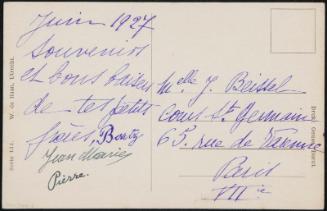 Juin 1927
Souvenirs
et bons baisers
de tes petits
frères, Boutz
Jean Marie
Pierre.
Melle J. Beissel
cours St Germain
65, rue de Varenne
Paris
VIIe
W. de Haan, Utrecht.
Serie 112.